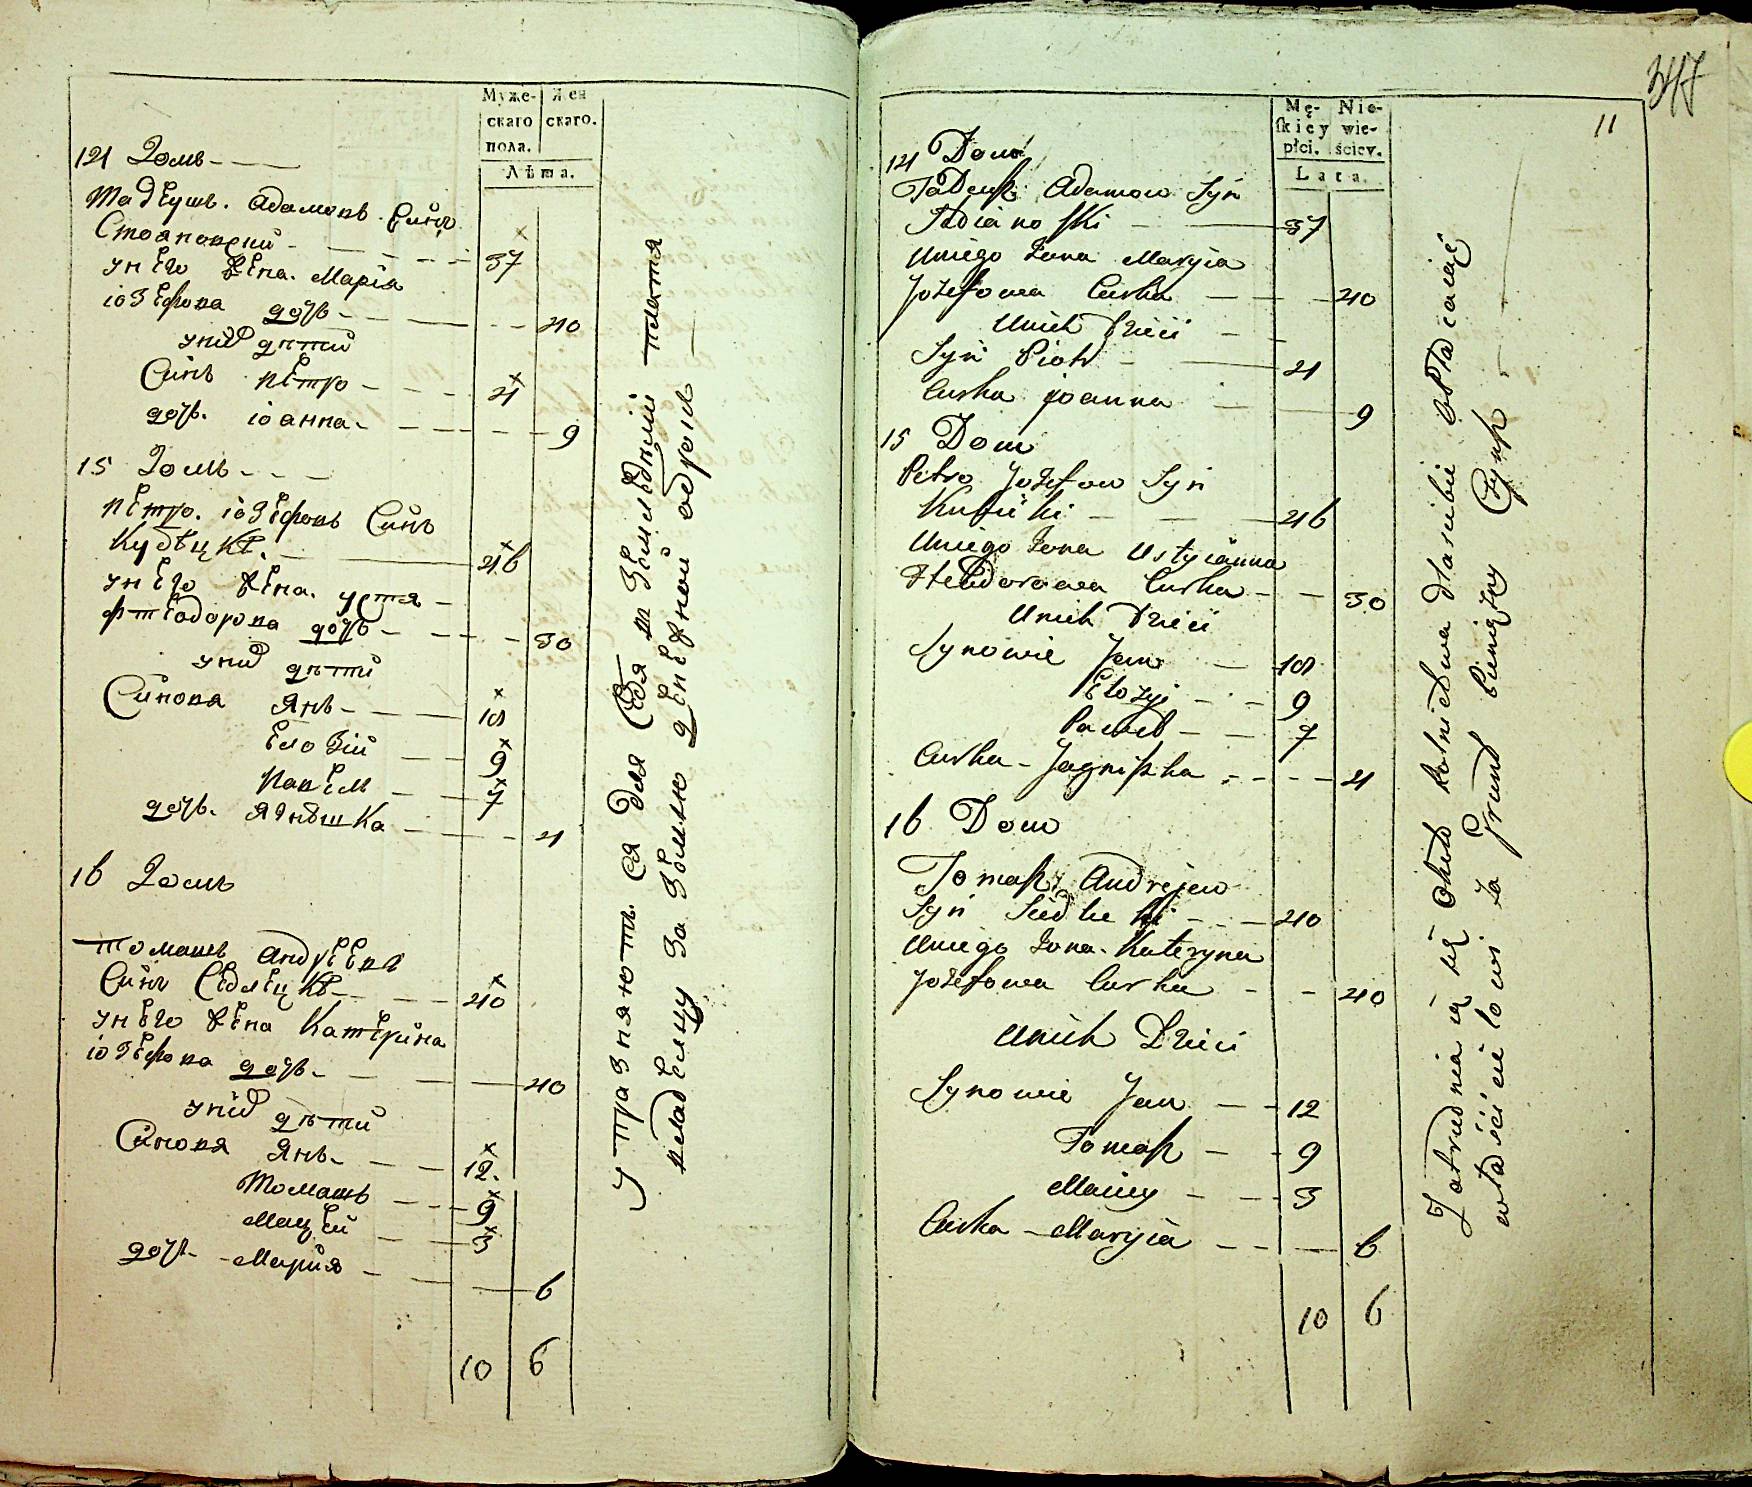 Муже- Жен
скаго скаго.
пола.
Лѣта.
14 Домъ
Тадеушъ. Адамовъ. Синъ
Стояновский 37
у него Жена. Марія
іозефова дочъ 40
у нихъ дѣти
Синъ Петро 4
дочъ. іоанна 9
15 Домъ
Петро. іозефовъ Синъ
Кубѣцкі. 46
у него Жена. Устя
фтеодорова дочъ 30
у нихъ дѣти
Синовя Янъ 18
Елозій 9
Павелъ 7
дочъ. Ягнѣшка 4
16 Домъ
томашъ Андреевъ
Синъ Седлецкі 40
у него Жена Катерина
іозефова дочъ 40
у нихъ дѣти
Синовя Янъ 12.
Томашъ 9
Мацей 3
дочъ Мария 6
10 6
упразняютъ. ся для себя
владелцу за Землю денежной
347
11
Mę- Nie-
skiey wie-
płci. ściey.
Lata.
14 Dom
Tadeusz Adamow Syn
Stoianoski 37
Uniego Zona Maryia
Jozefowa Curka 40
Unich Dzieci
Syn Piotr 4
Curka joanna 9
15 Dom
Petro Jozefow Syn
Kubicki 46
Uniego Zona Ustyianna
Fteodorowa Curka 30
Unich Dzieci
Synowie Jan 18
Elozyj 9
Paweł 7
Curka Jagniszka 4
16 Dom
Tomasz Andrejew
Syn Siedlecki 40
Uniego Zona. Kateryna
Jozefowa Curka 40
Unich Dzieci
Synowie Jan 12
Tomasz 9
Maciey 3
Curka Maryia 6
10 6
Zatrudnia ią się około rolnictwa dla siebie opłacaiąc
właścicielowi za Grunt Pieniężny Czynsz